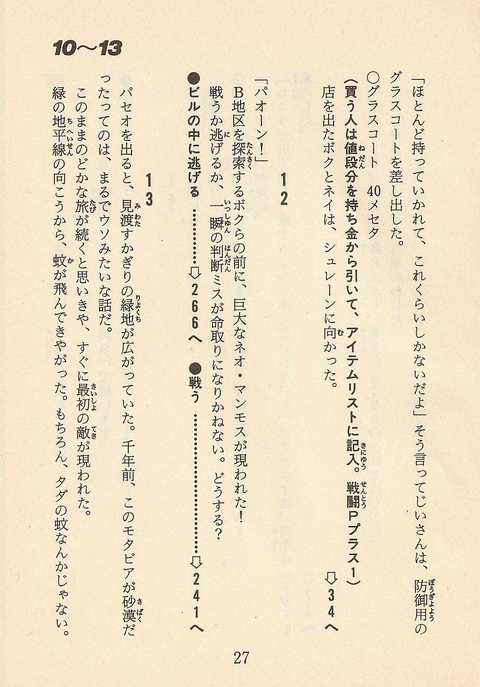 10〜13
「ほとんど持っていかれて、これくらいしかないだよ」そう言ってじいさんは、防御用の
グラスコートを差し出した。
○グラスコート　40メセタ
(買う人は値段分を持ち金から引いて、アイテムリストに記入。戦闘Pプラス1)
店を出たボクとネイは、シュレーンに向かった。　⇩34へ
12
「パオーン!」
B地区を探索するボクらの前に、巨大なネオ・マンモスが現われた!
戦うか逃げるか、一瞬の判断ミスが命取りになりかねない。どうする?
●ビルの中に逃げる………………⇩266へ　●戦う………………………………⇩241へ
13
パセオを出ると、見渡すかぎりの緑地が広がっていた。千年前、このモタビアが砂漠だ
ったってのは、まるでウソみたいな話だ。
このままのどかな旅が続くと思いきや、すぐに最初の敵が現われた。
緑の地平線の向こうから、蚊が飛んできやがった。もちろん、タダの蚊なんかじゃない。
27